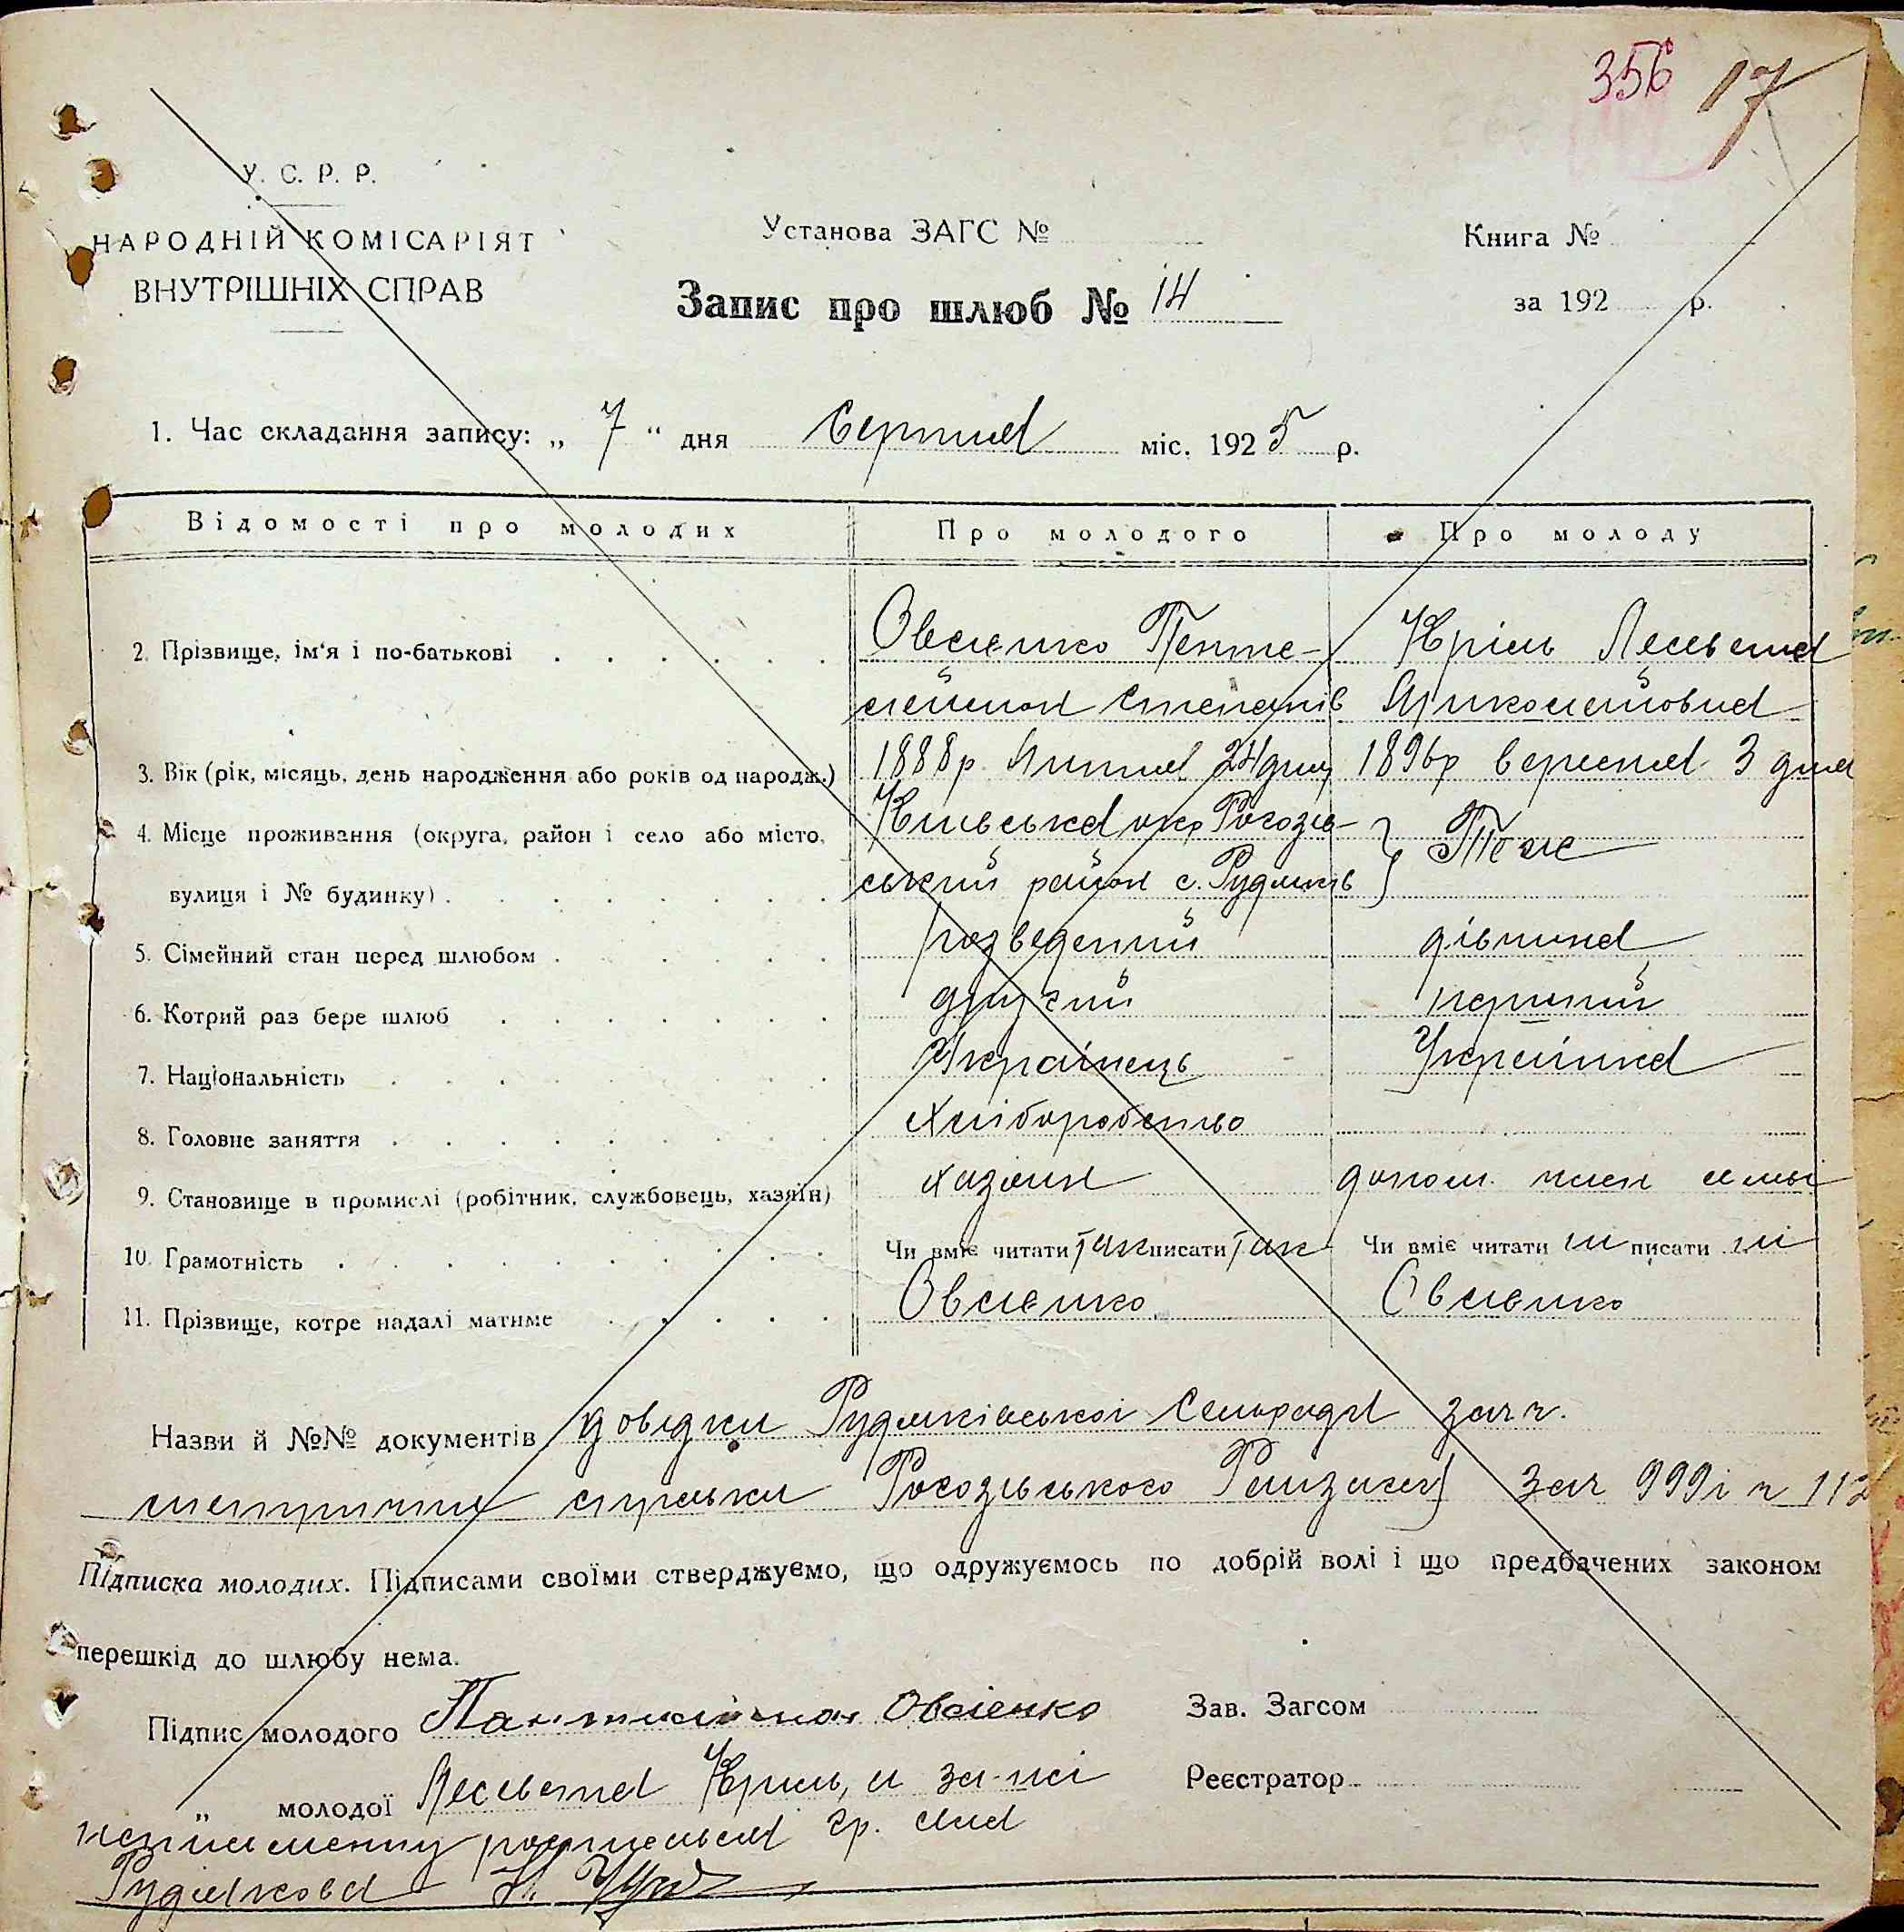 356 17
У. С. Р. Р.
НАРОДНІЙ КОМІСАРІЯТ
ВНУТРІШНІХ СПРАВ
Установа ЗАГС №
Книга №
Запис про шлюб № 14
за 192 р.
1. Час складання запису: „ 7 “ дня Серпня міс. 1925 р.
Відомості про молодих Про молодого Про молоду
2. Прізвище, ім'я і по-батькові Овсієнко Панте- Кріль
леймон Степанів
3. Вік (рік, місяць, день народження або років од народж.) 1888р. Липня 24 дня 1896р вересня 3 дня
4. Місце проживання (округа, район і село або місто, Київська окр Рогозів- } Теж
вулиця і № будинку) ський район с. Рудяків
5. Сімейний стан перед шлюбом розведений дівчина
6. Котрий раз бере шлюб другий перший
7. Національність Українець Українка
8. Головне заняття Хліборобство
9. Становище в промислі (робітник, службовець, хазяїн) хазяїн допом. член семьї
10. Грамотність Чи вміє читати так писати так Чи вміє читати ні писати ні
11. Прізвище, котре надалі матиме Овсієнко Овсієнко
Назви й №№ документів довідки Рудяківської Сельради за ч.
справки Рогозівського Райзагсу за ч 999 і ч 112
Підписка молодих. Підписами своїми стверджуємо, що одружуємось по добрій волі і що предбачених законом
перешкід до шлюбу нема.
Підпис молодого Овсієнко Зав. Загсом
„ молодої Кріль, а за неї Реєстратор
неписьменну гр. села
Рудякова